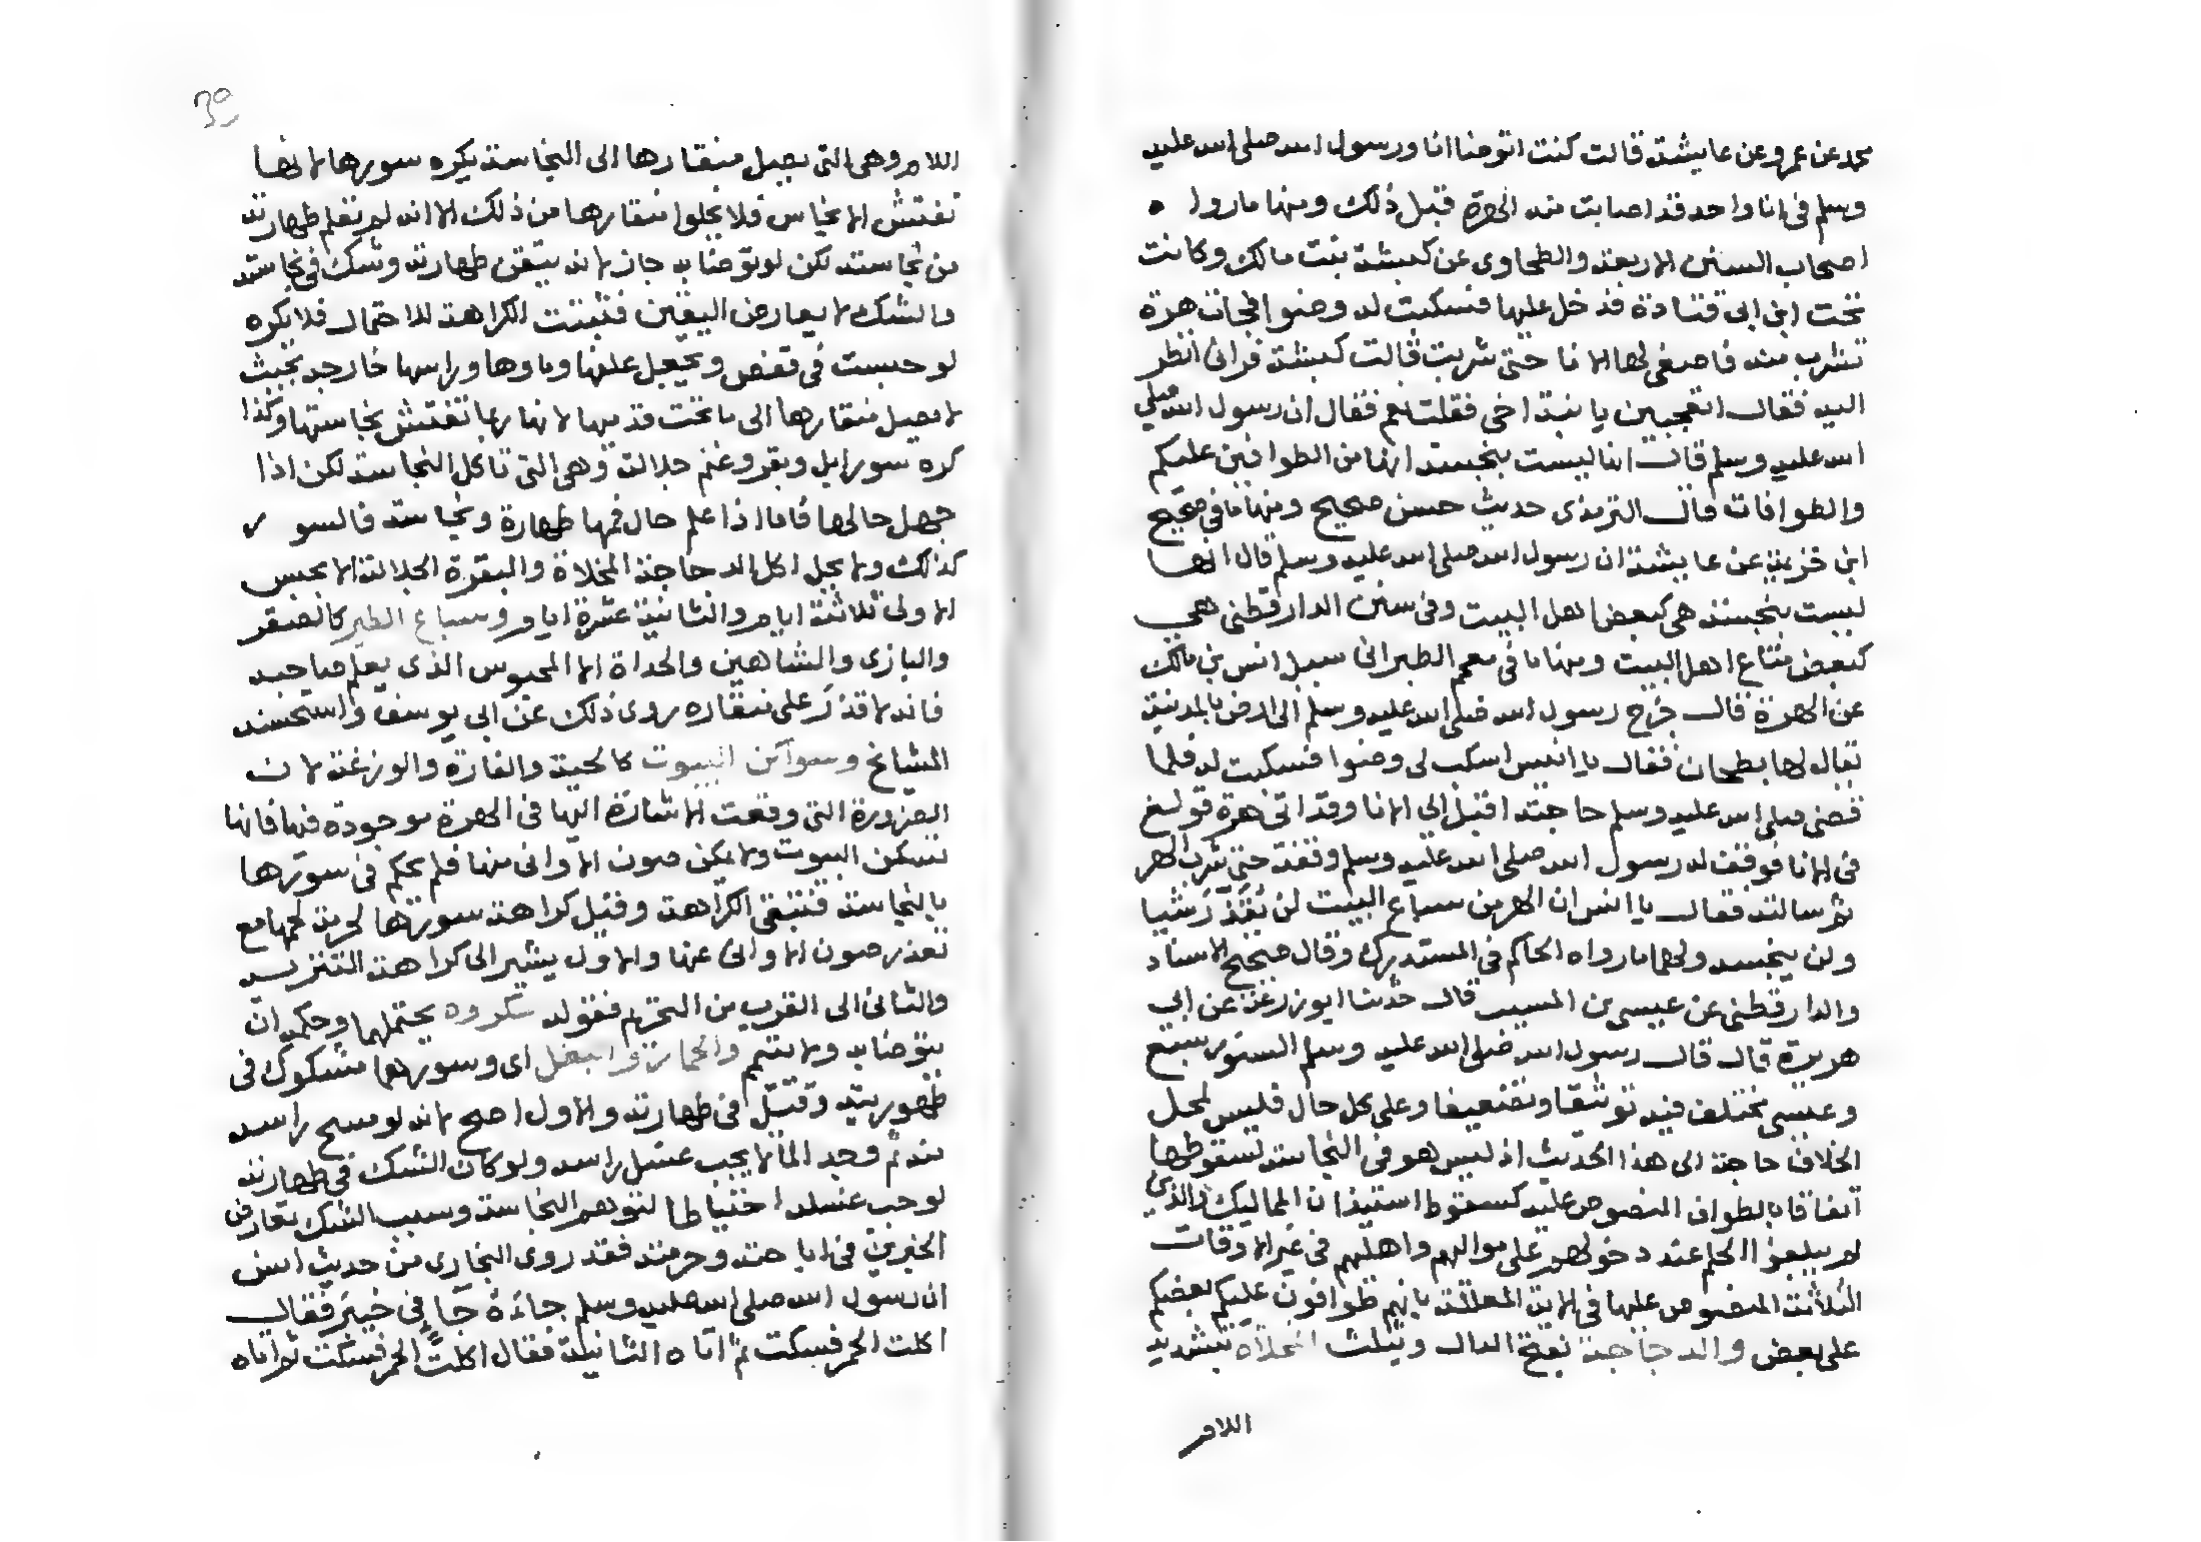 محمد عن عمرو عن عايشة قالت كنت اتوضا انا ورسول الله صلى الله عليه
وسلم فى انا واحد قد اصابت منه الهرة قبل ذلك ومنها ما روا ه
اصحاب السنن الاربعة والطحاوى عن كبشة بنت مالك وكانت
تحت ابن ابى قتادة قد خل عليها فسكبت له وضوا فجات هرة
تشرب منه فاصغى لها الانا حتى شربت قالت كبشة فرانى انظر
اليه فقال اتعجبين يا ابنة اخى فقلت نعم فقال ان رسول الله صلى
الله عليه وسلم قال انها ليست بنجسة انها من الطوافين عليكم
والطوافات قال الترمذى حديث حسن صحيح ومنها ما فى صحيح
ابن خزيمة عن عايشة ان رسول الله صلى الله عليه وسلم قال انها
ليست بنجسة هى كبعض اهل البيت وفى سنن الدار قطنى هى
كبعض متاع اهل البيت ومنها ما فى معجم الطبرانى سيل انس بن مالك
عن الهرة قال خرج رسول الله صلى الله عليه وسلم الى ارض بالمدينة
يقال لها بطحان فقال يا انس اسكب لى وضوا فسكبت له فلما
قضى صلى الله عليه وسلم حاجته اقبل الى الانا وقد اتى هرة فولغ
فى الانا فوقف له رسول الله صلى الله عليه وسلم وقفة حتى شرب الهر
ثم سالته فقال يا انس ان الهر من سباع البيت لن يقذر شيا
ولن ينجسه ولهما ما رواه الحاكم فى المستدرك وقال صحيح الاسناد
والدارقطنى عن عيسى بن المسيب قال حدثنا ابو زرعة عن ابى
هريرة قال قال رسول الله صلى الله عليه وسلم السنور سبع
وعيسى مختلف فيه توثيقا وتضعيفا وعلى كل حال فليس لمحل
الخلاف حاجة الى هذا الحديث اذ ليس هو فى النجاسة لسقوطها
اتفاقا بالطواف المنصوص عليه كسقوط استيذان المماليك والذين
لم يبلغوا الحلم عند دخولهم على مواليهم واهليهم فى غير الاوقات
الثلاثة المنصوص عليها فى الاية المعللة بانهم طوافون عليكم بعضكم
على بعض والد جاجة بفتح الدال ويثلث المخلاه بتشديد
اللام
اللام وهى التى يصل منقارها الى النجاسة يكره سورها لانها
تفتش الانجاس فلا يخلوا منقارها من ذلك الا انه لم تعلم طهارته
من نجاسته لكن لو توضا به جاز لانه يتيقن طهارته وشك فى نجاسته
والشك لا يعارض اليقين فثبتت الكراهة للاحتمال فلا يكره
لو حبست فى قفص ويجعل علفها وماوها وراسها خارجه بحيث
لا يصل منقارها الى ما تحت قدميها لانها ربما تفتش نجاستها وكذا
كره سور ابل وبقر وغنم جلالة وهى التى تاكل النجاسة لكن اذا
جهل حالها فاما اذا علم حال فمها طهارة ونجاسة فالسو ر
كذلك ولا يحل اكل الد حاجة المخلاة والبقرة الجلالة الا بحبس
الاولى ثلاثة ايام والثانية عشرة ايام وسباع الطير كالصقر
والبازى والشاهين والحداة الا المحبوس الذى يعلم صاحبه
فانه لا قذر على منقاره روى ذلك عن ابى يوسف واستحسنه
المشايخ وسواكن البيوت كالحية والفارة والوزغة لا ن
الضرورة التى وقعت الاشارة اليها فى الهرة موجودة فيها فانها
تسكن البيوت ولا يمكن صون الاوانى منها فلم يحكم فى سورها
بالنجاسة فتبقى الكراهة وقيل كراهة سورها لحرمة لحمها مع
تعذر صون الاوانى عنها والاول يشير الى كراهة التنزيه
والثانى الى القرب من التحريم فقوله مكروه يحتملهما وحكمه ان
يتوضا به ولا يتيمم والحمار والبغل اى وسورهما مشكوك فى
طهوريته وقيل فى طهارته والاول اصح لانه لو مسح راسه
منه ثم وجد الما لا يجب غسل راسه ولو كان الشك فى طهارته
لوجب غسله احتياطا لتوهم النجاسة وسبب الشك تعارض
الخبرين فى اباحته وحرمته فقد روى البخارى من حديث انس
ان رسول الله صلى الله عليه وسلم جاءه جاء فى خيبر فقال
اكلت الحمر فسكت ثم اتاه الثانية فقال اكلت الحمر فسكت ثم اتاه